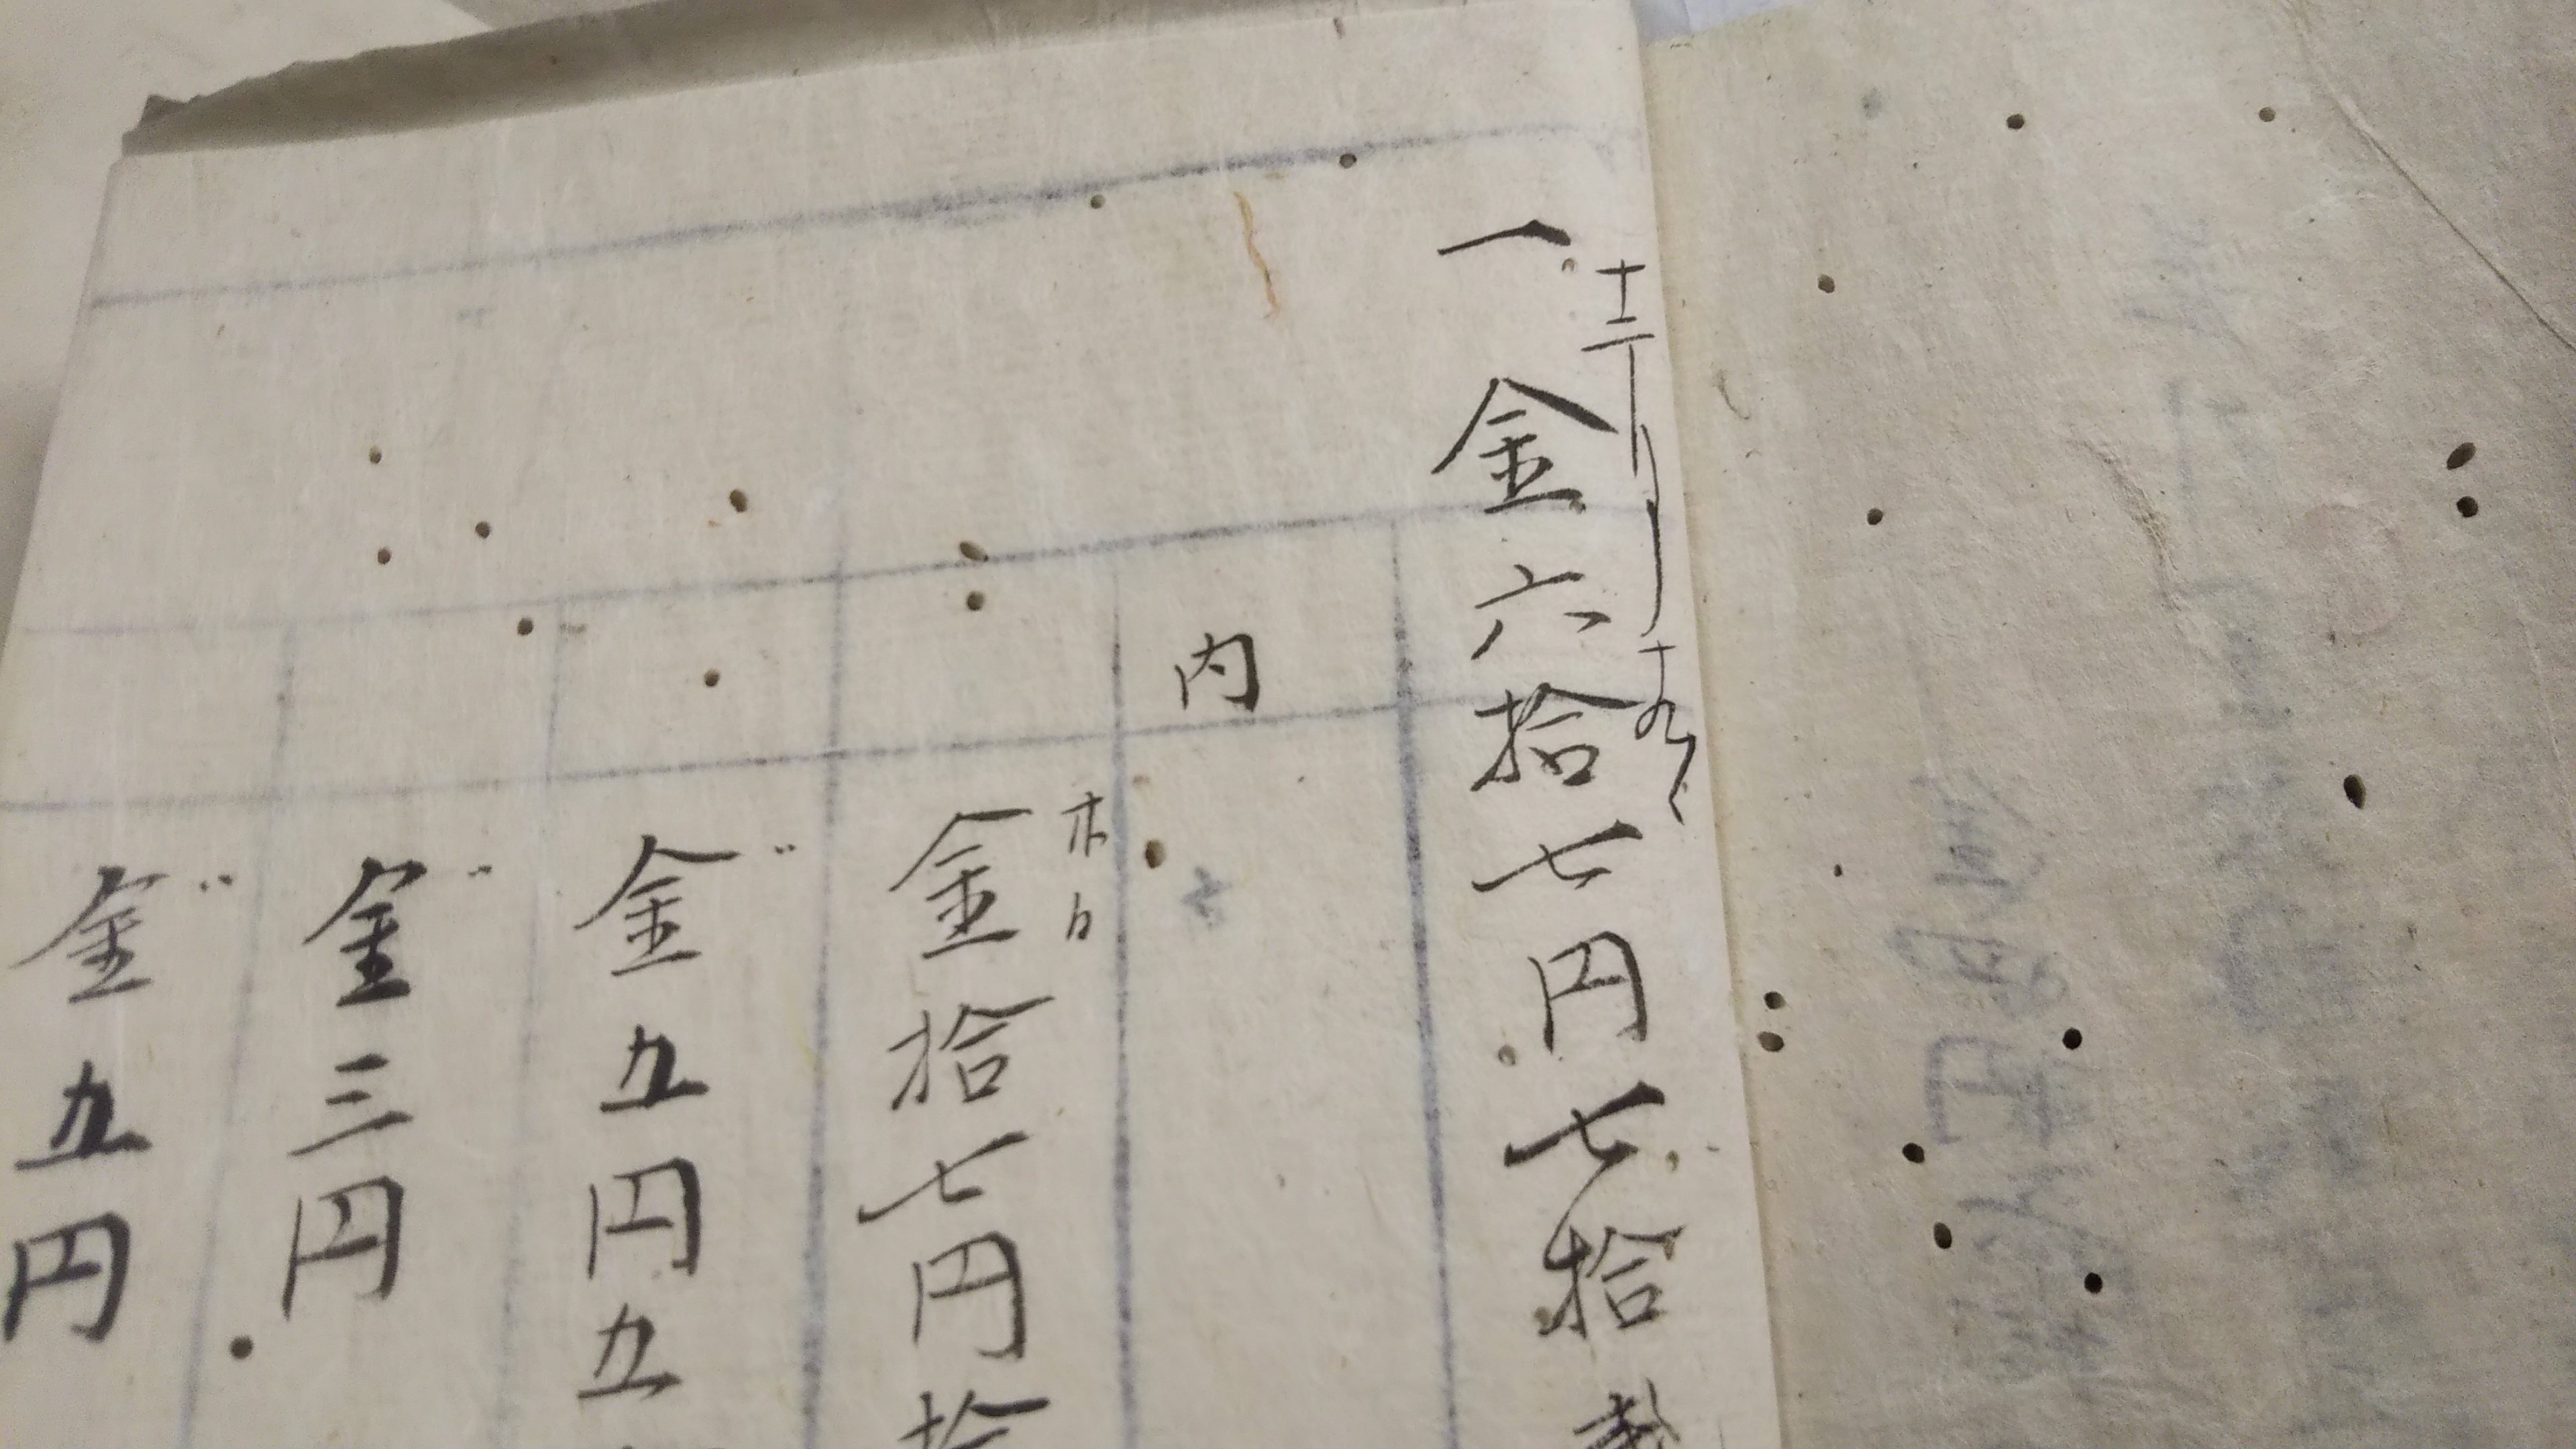 十二月十九日
一金六拾七円七拾
内
金拾七円拾
金五円五
金三円
金五円